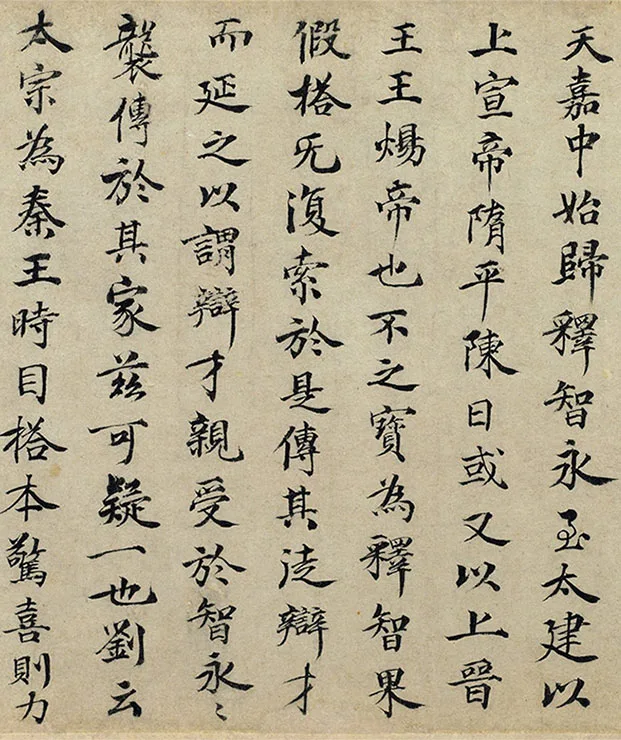 天嘉中始歸釋智永至太建以
上宣帝隋平陳日或又以上晉
王王煬帝也不之寶為釋智果
假榙旡復索於是傳其徒辯才
而延之以謂辯才親受於智永〻
襲傳於其家茲可疑一也劉云
太宗為秦王時目榙本驚喜則力